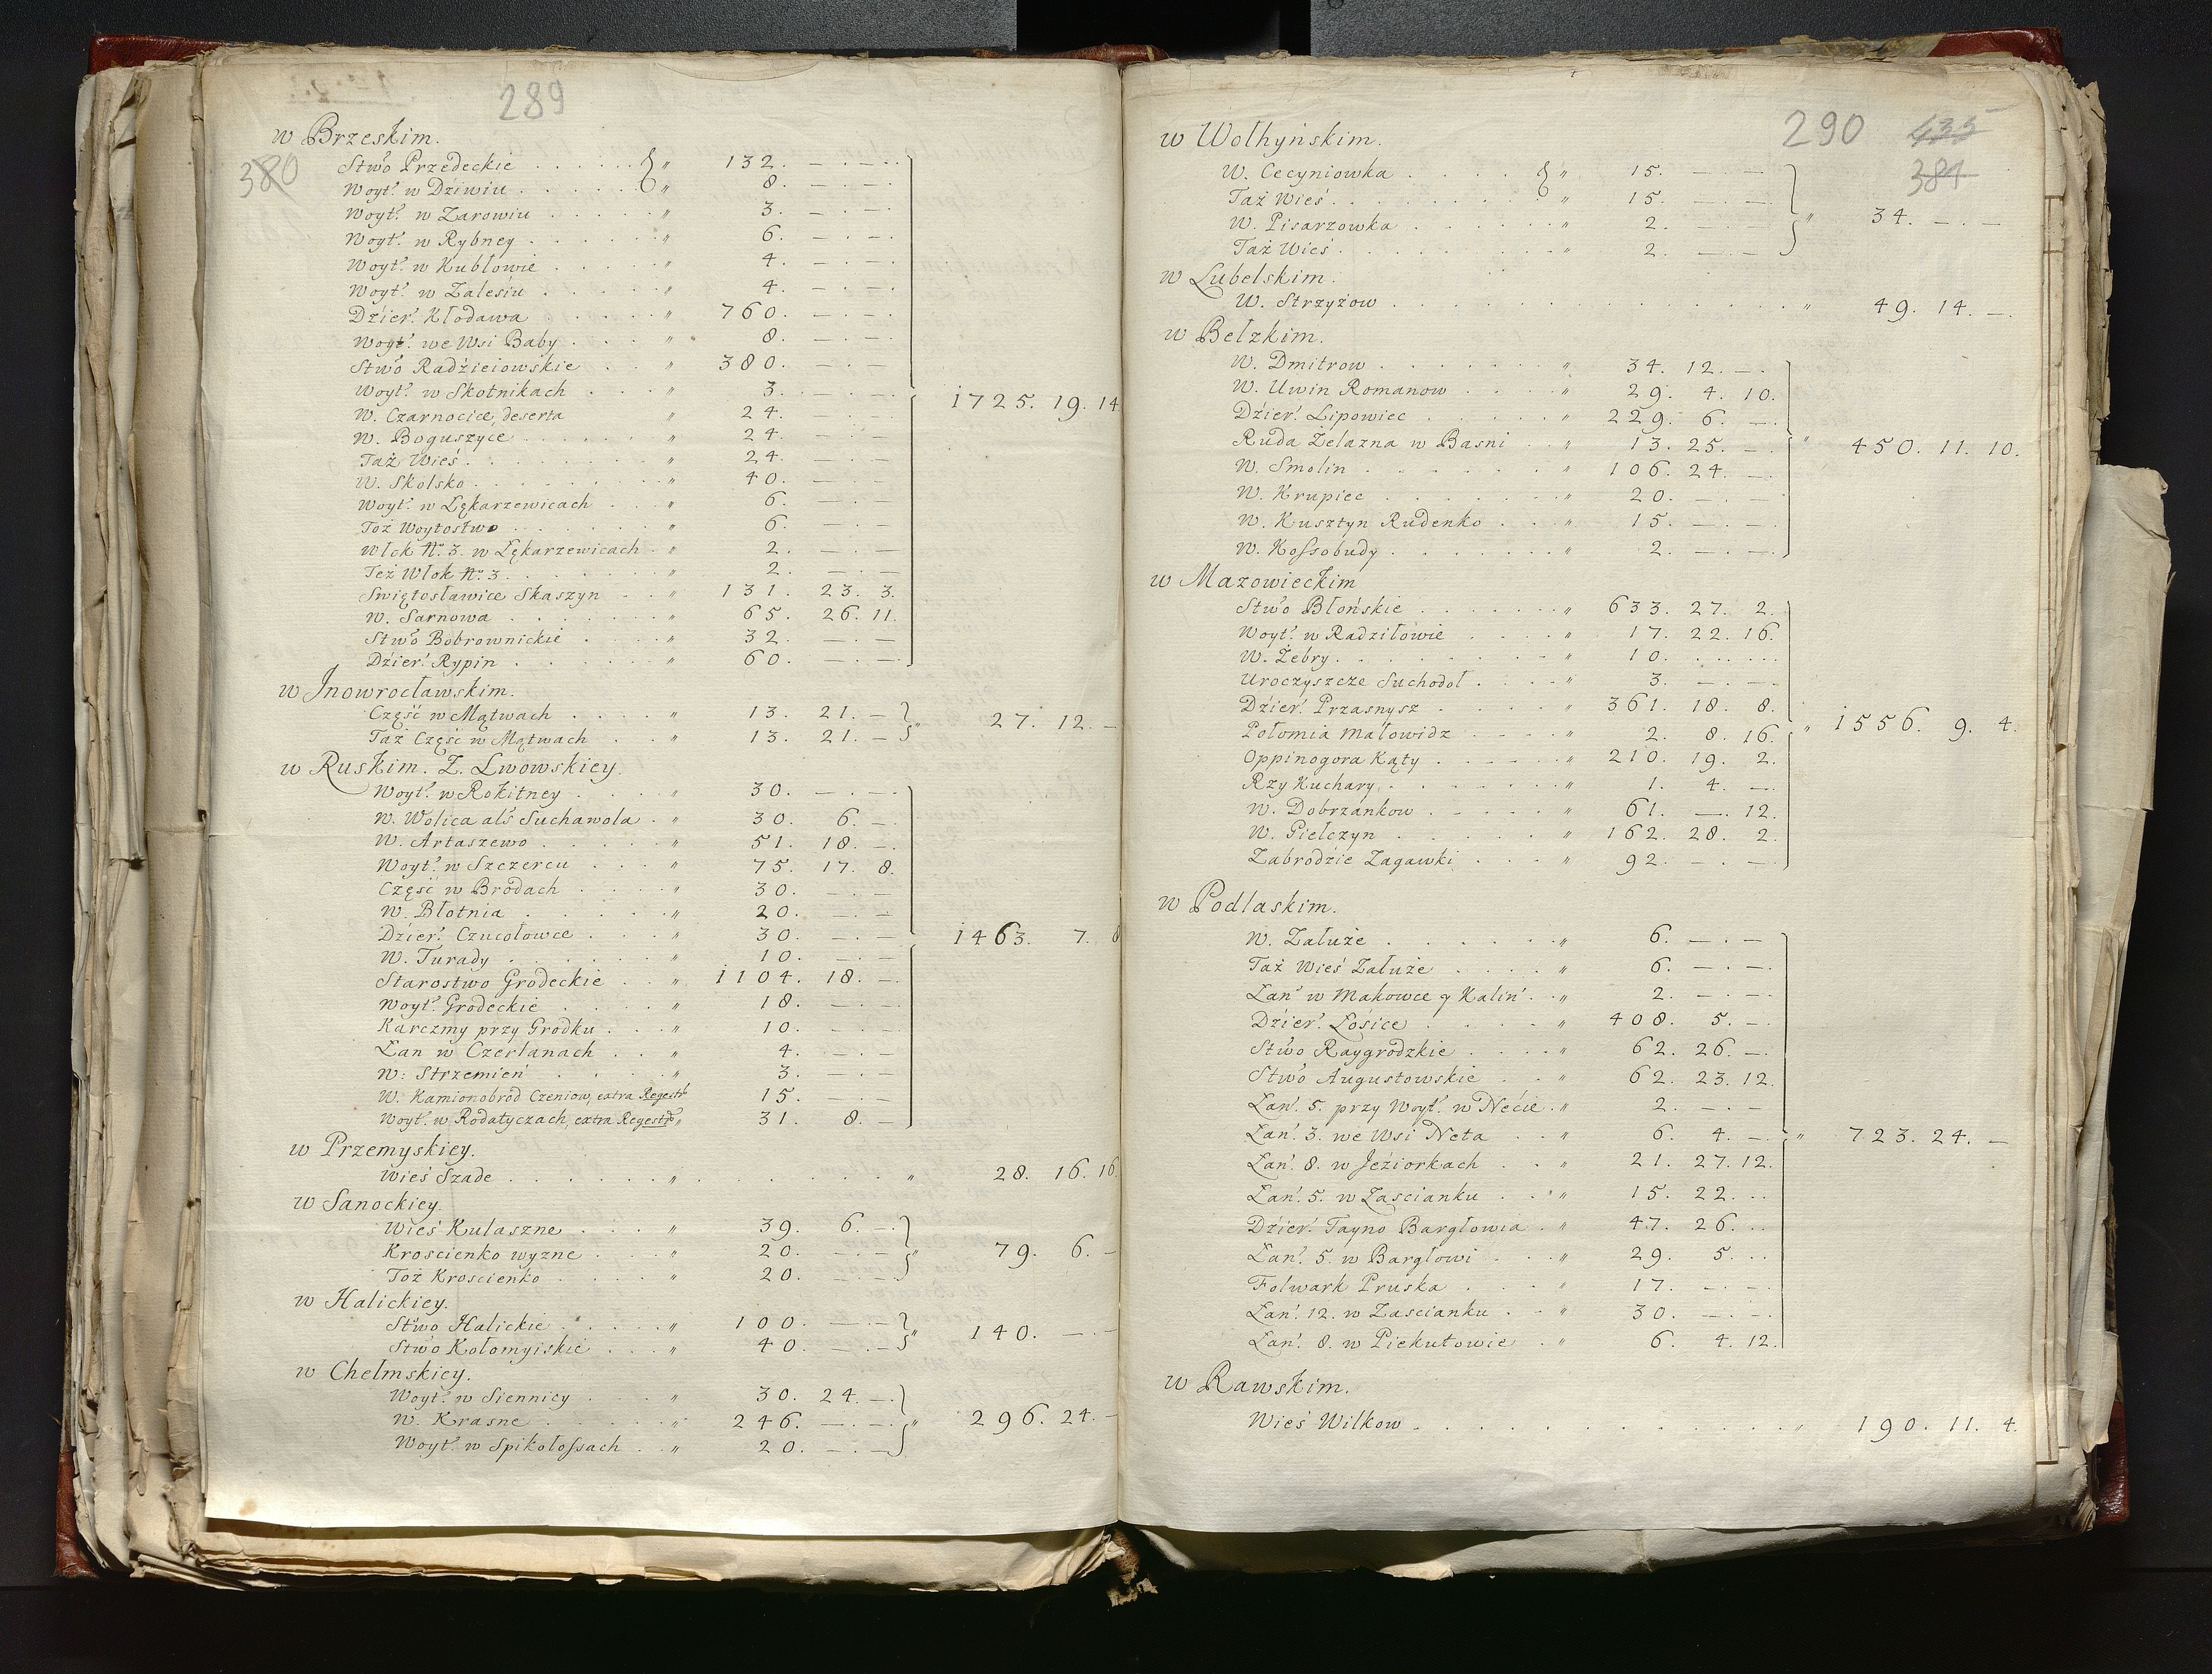 289
w Brzeskim.
380
Stwo Przedeckie . . . . . " 132. — . — .
Woyt. w Dźiwiu . . . . . " 8. — . — .
Woyt. w Zarowiu . . . . . " 3. — . — .
Woyt. w Rybney . . . . . " 6. — . — .
Woyt. w Kubłowie . . . . . " 4. — . — .
Woyt. w Zalesiu . . . . . " 4. — . — .
Dźier. Kłodawa . . . . . " 760. — . — .
Woyt. we Wsi Baby . . . " 8. — . — .
Stwo Radźieiowskie . . " 380. — . — .
Woyt. w Skotnikach . . . " 3. — . — .
1725. 19. 14
W. Czarnocice, deserta " 24. — . — .
W. Boguszyce . . . . . " 24. — . —
Taż Wieś . . . . . . " 24. — . —
W. Skolsko . . . . . . " 40. — . —
Woyt. w Lękarzewicach . . " 6. — . —
Toż Woytostwo . . . . . " 6. — . —
Włok No. 3. w Lękarzewicach . " 2. — . —
Też Włok No. 3 . . . . . " 2. — . —
Swiętosławice Skaszyn . . " 131. 23. 3.
W. Sarnowa . . . . . " 65. 26. 11.
Stwo Bobrownickie . . . " 32. — . —
Dźier. Rypin . . . . . " 60. — . —
w Inowrocławskim.
Część w Mątwach . . . . " 13. 21. —
" 27. 12. —
Taż Część w Mątwach . . " 13. 21. —
w Ruskim. Z. Lwowskiey.
Woyt. w Rokitney . . . . " 30. — . — .
W. Wolica als Suchawola . " 30. 6. —
W. Artaszewo . . . . . " 51. 18. —
Woyt. w Szczercu . . . . " 75. 17. 8.
Część w Brodach . . . . " 30. — . —
W. Błotnia . . . . . " 20. — . —
Dzier. Czucołowce . . . " 30. — . —
1463. 7. 8
W. Turady . . . . . . " 10. — . —
Starostwo Grodeckie . . " 1104. 18. —
Woyt. Grodeckie . . . . " 18. — . —
Karczmy przy Grodku . . . " 10. — . —
Łan w Czerlanach . . . " 4. — . —
W. Strzemień . . . . . " 3. — . —
W. Kamionobrod Czeniow, extra Regestr 15. — . —
Woyt. w Rodatyczach, extra Regestr " 31. 8. —
w Przemyskiey.
Wieś Szade . . . . . . " . . . . . . " 28. 16. 16.
w Sanockiey.
Wieś Kulaszne . . . . " 39. 6. —
Kroscienko wyzne . . . " 20. — . — " 79. 6. —
Toż Kroscienko . . . . " 20. — . —
w Halickiey.
Stwo Halickie . . . . . " 100. — . —
" 140. — . —
Stwo Kołomyiskie . . . " 40. — . —
w Chełmskiey.
Woyt. w Siennicy . . . . " 30. 24. —
W. Krasne . . . . . . " 246. — . — " 296. 24. —
Woyt. w Spikołossach . . " 20. — . —
290 435
384
w Wołhyńskim.
W. Cecyniowka . . . . " 15. — . —
Taż Wieś . . . . . . . " 15. — . — .
W. Pisarzowka . . . . . " 2. — . — . " 34. — . —
Taż Wieś . . . . . . . " 2. — . —
w Lubelskim.
W. Strzyżow . . . . . . . . . . . . " 49. 14. — .
w Bełzkim.
W. Dmitrow . . . . . . " 34. 12. — .
W. Uwin Romanow . . . . " 29. 4. 10.
Dźier. Lipowiec . . . . . " 229. 6. — .
Ruda Żelazna w Basni . . " 13. 25. — . " 450. 11. 10.
W. Smolin . . . . . . . " 106. 24. — .
W. Krupiec . . . . . . . " 20. — . — .
W. Kusztyn Rudenko . . . " 15. — . — .
W. Kossobudy . . . . . . " 2. — . — .
w Mazowieckim
Stwo Błońskie . . . . . . " 633. 27. 2.
Woyt. w Radziłowie . . . . " 17. 22. 16.
W. Żebry . . . . . . . " 10. . . . . .
Uroczyszcze Suchodoł . . . " 3. — . — .
Dźier. Przasnysz . . . . . " 361. 18. 8.
" 1556. 9. 4.
Połomia Małowidz . . . . " 2. 8. 16.
Oppinogora Kąty . . . . . " 210. 19. 2.
Rzy Kuchary . . . . . . . " 1. 4. — .
W. Dobrzankow . . . . . " 61. — . 12.
W. Piełczyn . . . . . . " 162. 28. 2.
Zabrodzie Zagawki . . . . " 92. — . — .
w Podlaskim.
W. Załuże . . . . . . . " 6. — . —
Taż Wieś Załuże . . . . " 6. — . — .
Łan w Makowce y Kalin . . " 2. — . — .
Dźier. Łosice . . . . . " 408. 5. — .
Stwo Raygrodzkie . . . . " 62. 26. — .
Stwo Augustowskie . . . " 62. 23. 12.
Łan. 5. przy Woyt. w Nećie . " 2. — . —
Łan. 3. we Wsi Neta . . " 6. 4. — . " 723. 24. —
Łan. 8. w Jeźiorkach . . " 21. 27. 12.
Łan. 5. w Zascianku . . " 15. 22. . .
Dźier. Tayno Bargłowia . " 47. 26. . .
Łan. 5. w Bargłowi . . . " 29. 5. . .
Folwark Pruska . . . . " 17. — . —
Łan. 12. w Zascianku . . " 30. — . — .
Łan. 8. w Piekutowie . . " 6. 4. 12.
w Rawskim.
Wieś Wilkow . . . . . . . . . . . . " 190. 11. 4.